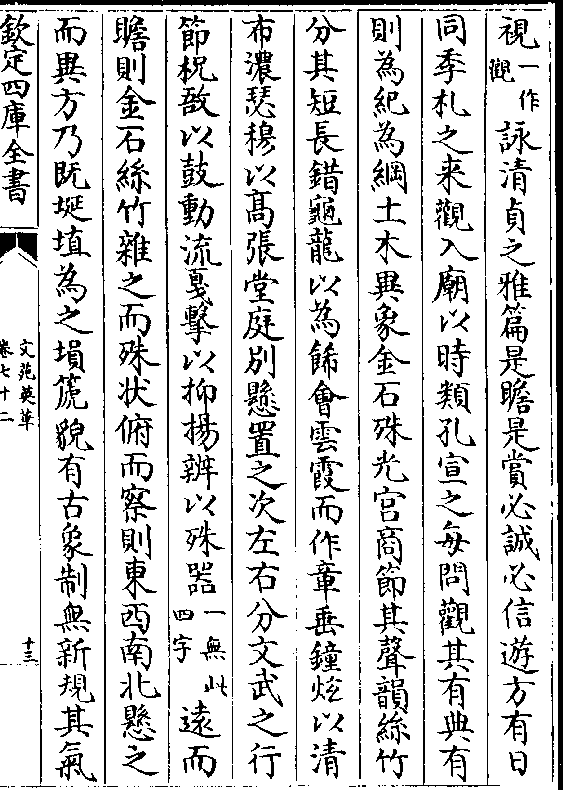 視一作觀詠清貞之雅篇是瞻是賞必誠必信遊方有日
同季札之来觀入廟以時類孔宣之每問觀其有典有
則為紀為綱土木異象金石殊光宮商節其聲韻絲竹
分其短長錯龜龍以為餙會雲霞而作章垂鐘炫以清
布濃瑟穆以髙張堂庭别懸置之次左右分文武之行
節柷敔以鼓動流戞擊以抑揚辨以殊器一無此四字遠而
瞻則金石絲竹雜之而殊状俯而察則東西南北懸之
而異方乃既埏埴為之塤箎貌有古象制無新規其氣
欽定四庫全書
文苑英華
卷七十二
十三